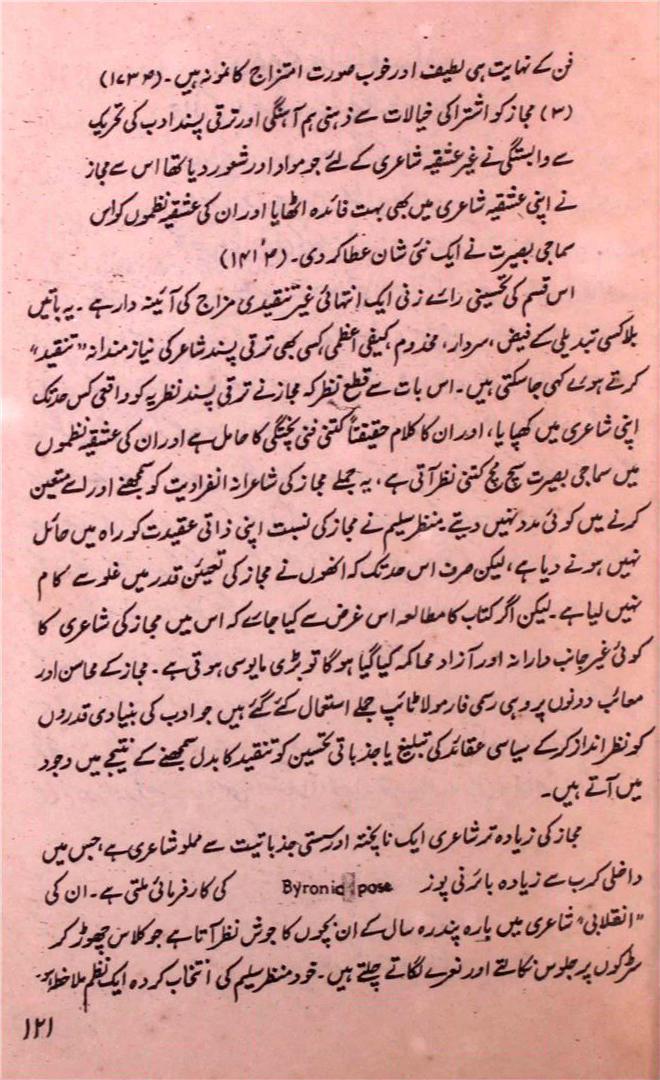 فن کے نہایت ہی لطیف اور خوب صورت امتزاج کا نمونہ ہیں۔ (۱۷۳۴)
(۳) مجاز کو اشتراکی خیالات سے ذہنی ہم آہنگی اور ترقی پسند ادب کی تحریک
سے وابستگی نے غیر عشقیہ شاعری کے لئے جو مواد اور شعور دیا تھا اس سے مجاز
نے اپنی عشقیہ شاعری میں بھی بہت فائدہ اٹھایا اور ان کی عشقیہ نظموں کو اس
سماجی بصیرت نے ایک نئی شان عطا کر دی۔
اس قسم کی تحسینی رائے زنی ایک انتہائی غیر تنقیدی مزاج کی آئینہ دار ہے۔ یہ باتیں
بلا کسی تبدیلی کے فیض، سردار، مخدوم، کیفی اعظمی کسی بھی ترقی پسند شاعر کی نیاز مندانہ "تنقید"
کرتے ہوئے کہی جا سکتی ہیں۔ اس بات سے قطع نظر کہ مجاز نے ترقی پسند نظریہ کو واقعی کس حد تک
اپنی شاعری میں کھپایا، اور ان کا کلام حقیقتاً کتنی فنی پختگی کا حامل ہے اور ان کی عشقیہ نظموں
میں سماجی بصیرت سچ مچ کتنی نظر آتی ہے، یہ جملے مجاز کی شاعرانہ انفرادیت کو سمجھنے اور اسے متعین
کرنے میں کوئی مدد نہیں دیتے۔ منظر سلیم نے مجاز کی نسبت اپنی ذاتی عقیدت کو راہ میں حائل
نہیں ہونے دیا ہے، لیکن صرف اس حد تک کہ انھوں نے مجاز کی تعیئن قدر میں غلو سے کام
نہیں لیا ہے۔ لیکن اگر کتاب کا مطالعہ اس غرض سے کیا جائے کہ اس میں مجاز کی شاعری کا
کوئی غیر جانب دارانہ اور آزاد محاکمہ کیا گیا ہو گا تو بڑی مایوسی ہوتی ہے۔ مجاز کے محاسن اور
معائب دونوں پر وہی رسمی فارمولا ٹائپ جملے استعمال کئے گئے ہیں جو ادب کی بنیادی قدروں
کو نظر انداز کر کے سیاسی عقائد کی تبلیغ یا جذباتی تحسین کو تنقید کا بدل سمجھنے کے نتیجے میں وجود
میں آتے ہیں۔
مجاز کی زیادہ تر شاعری ایک ناپختہ اور سستی جذباتیت سے مملو شاعری ہے، جس میں
داخلی کرب سے زیادہ بائرنی پوز Byronic pose کی کارفرمائی ملتی ہے۔ ان کی
"انقلابی" شاعری میں بارہ پندرہ سال کے ان بچوں کا جوش نظر آتا ہے جو کلاس چھوڑ کر
سڑکوں پر جلوس نکالتے اور نعرے لگاتے چلتے ہیں۔ خود منظر سلیم کی انتخاب کردہ ایک نظم ملاحظہ ہو۔
۱۲۱